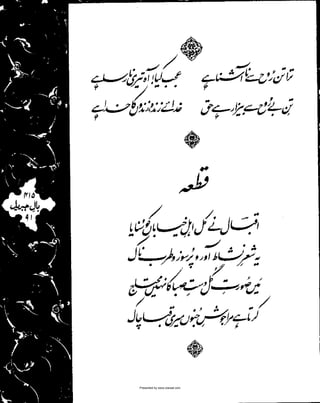 ترا تن رُوح سے ناآشنا ہے
عجب کیا! آہ تیری نارسا ہے
تنِ بے رُوح سے بیزار ہے حق
خدائے زندہ، زندوں کا خدا ہے
قطعہ
اقبال نے کل اہلِ خیاباں کو سُنایا
یہ شعرِ نشاط آور و پُرسوز و طربناک
مَیں صُورتِ گُل دستِ صبا کا نہیں محتاج
کرتا ہے مرا جوشِ جُنوں میری قبا چاک
۳۱۵
بالِ جبریل
۹۱